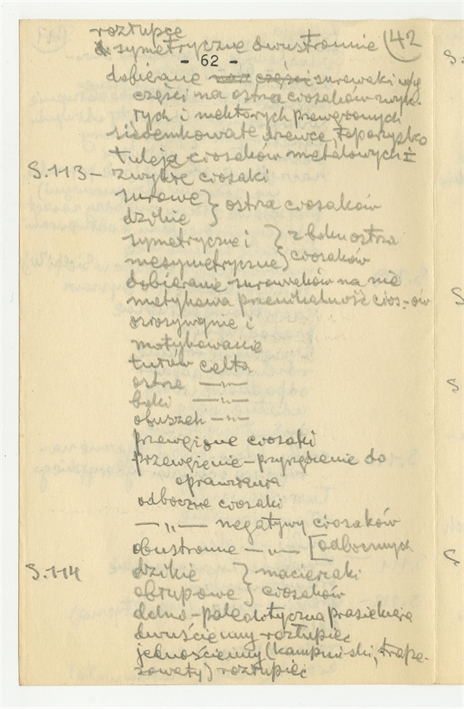 rozłupce
symetryczne dwustronnie (42)
- 62 -
dobierane części surowaki
części na ostra ciosaków zwyk-
łych i niektórych przewęzionych
siedenkowate drzewce toporzysko
tuleja ciosaków metalowych i
S.113 - zwykłe ciosaki
surowe } ostra ciosaków
dzikie }
symetryczne i } z boku ostrza
niesymetryczne } ciosaków
dobieranie surowaków na nie
motykowa przenikalność cios-ów
motykowanie
tułów celta
ostrze —„—
boki —„—
obuszek —„—
przewęzione ciosaki
przewężenie - przyrządzenie do
oprawienia
odboczne ciosaki
—„— negatywy ciosaków
obustronne —„— [odbocznych
S.114 dzikie } macierzaki
obłupowe } ciosaków
dolno-paleolityczna prasiekiera
dwuścienny rozłupiec
jednościenny (kampiński, trape-
zowaty) rozłupiec